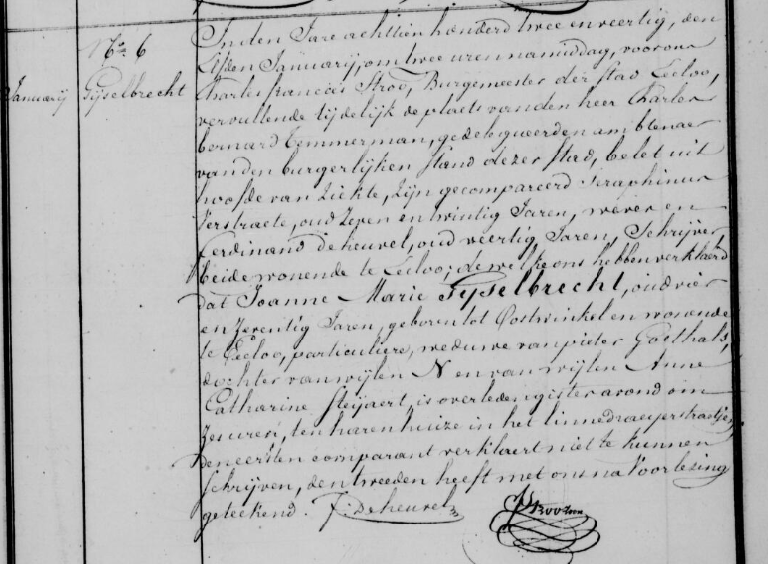 No 6
Januarij Gijselbrecht
In den Jare achttien honderd twee en veertig, den
Januarij, om twee uren namiddag, voor ons
Charles francies Stroo, Burgemeester der stad Eecloo,
vervullende tijdelijk de plaets van den heer Charles
bernard Temmerman, gedelegueerden ambtenaer
van den burgerlijken stand dezer stad, belet uit
hoofde van Ziekte, Zijn gecompareerd Seraphinus
Verstraete, oud Zeven en twintig Jaren, wever en
Ferdinand Deheuvel, oud veertig Jaren, Schrijver
beide wonende te Eecloo; dewelke ons hebben verklaerd
dat Joanne Marie Gijselbrecht, oud vier
en Zeventig Jaren, geboren tot Oostwinkel en wonende
te Eecloo, particuliere, weduwe van pieter Goethals,
dochter van wijlen N en van wijlen Anne
Catharine Steijaert, is overleden gister avond om
Zes uren, ten haren huize in het linnedraeyerstraetjen,
den eersten comparant verklaert niet te kunnen
schrijven, den tweeden heeft met ons na Voorlezing
geteekend. F. Deheuvel